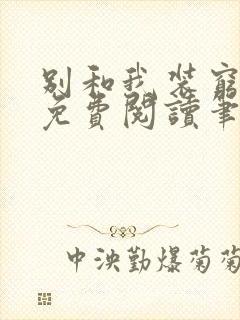 别和我装穷
免费閱讀笔
中泱勤爆菊菊